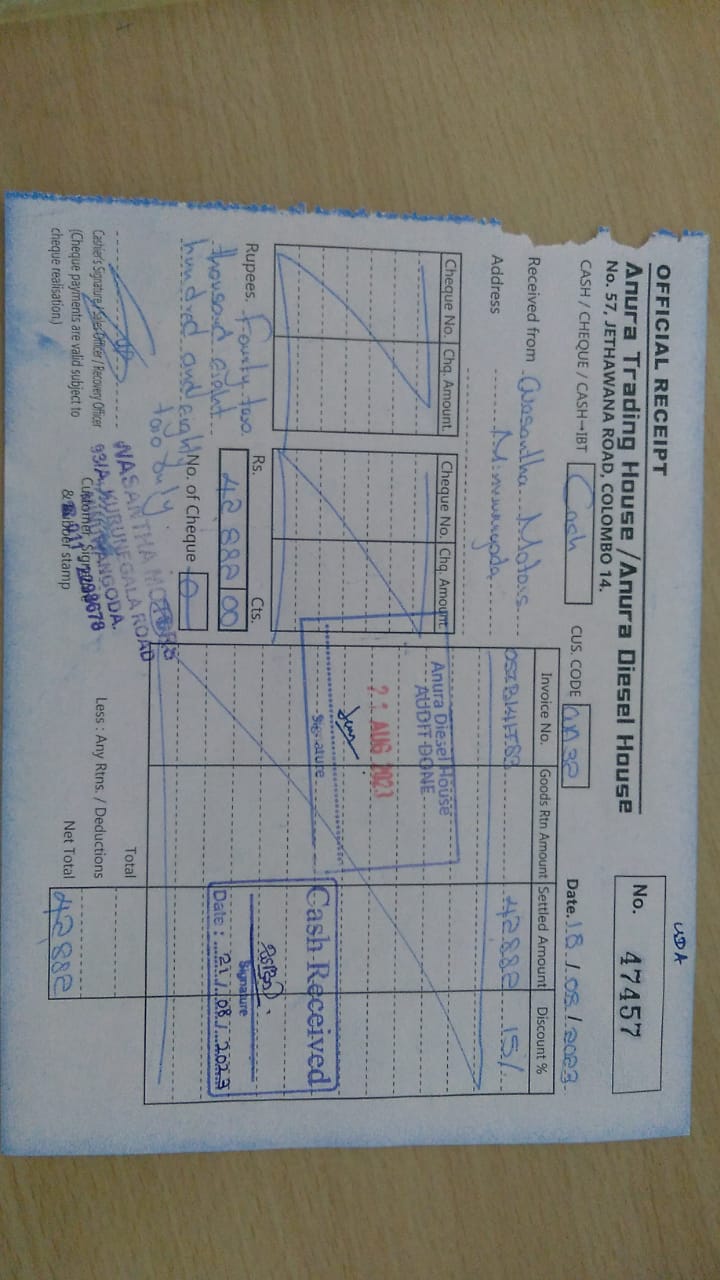 UDA
OFFICIAL RECEIPT
Anura Trading House / Anura Diesel House
No. 57, JETHAWANA ROAD, COLOMBO 14.
No. 47457
CASH / CHEQUE / CASH→IBT Cash
CUS. CODE
Date. 18 / 08 / 2023
Received from
Address
Cheque No. Chq. Amount
Cheque No. Chq. Amount
Invoice No. Goods Rtn Amount Settled Amount Discount %
42882 15%
Anura Diesel House
AUDIT DONE
21 AUG 2023
Signature
Cash Received
Signature
Date : 21 / 08 / 2023
Rupees. Fourty two
thousand eight
hundred and eighty
two only.
Rs. Cts.
42 882 00
No. of Cheque
Total
Less : Any Rtns. / Deductions
Net Total 42,882
Cashier's Signature / Sales Officer / Recovery Officer
(Cheque payments are valid subject to
cheque realisation.)
Customer Signature
& Rubber stamp
WASANTHA MOTORS
93/A, KURUNEGALA ROAD